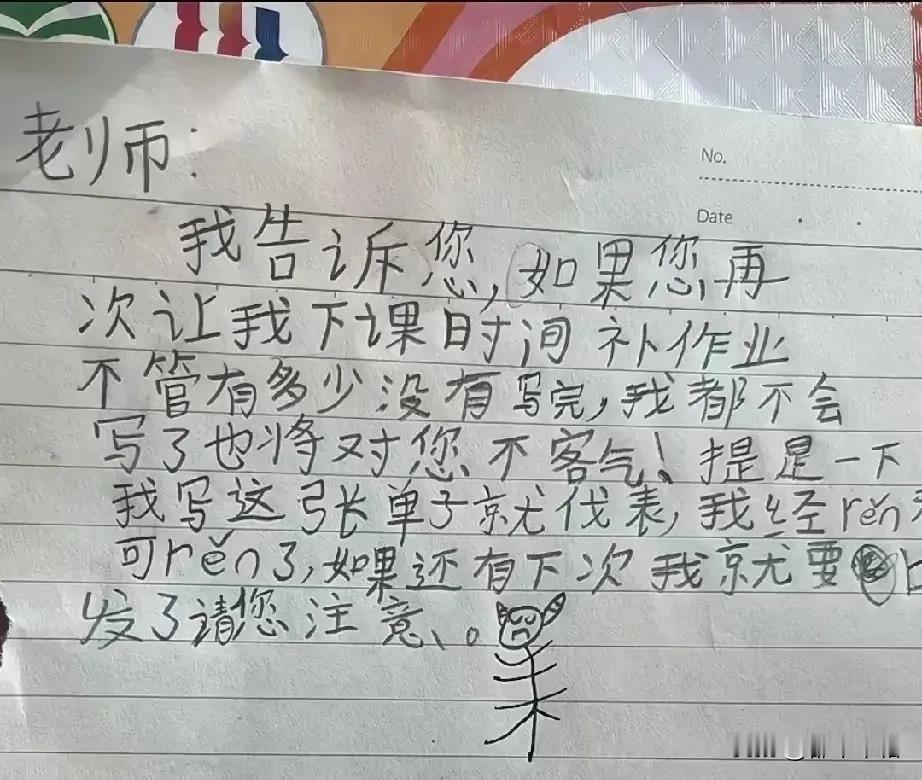 No.
老师:
Date
我告诉您,如果您再
次让我下课时间补作业
不管有多少没有写完,我都不会
写了也将对您不客气!提是一下
我写这张单子就代表,我经rěn
可rěn了,如果还有下次我就要
发了请您注意、。